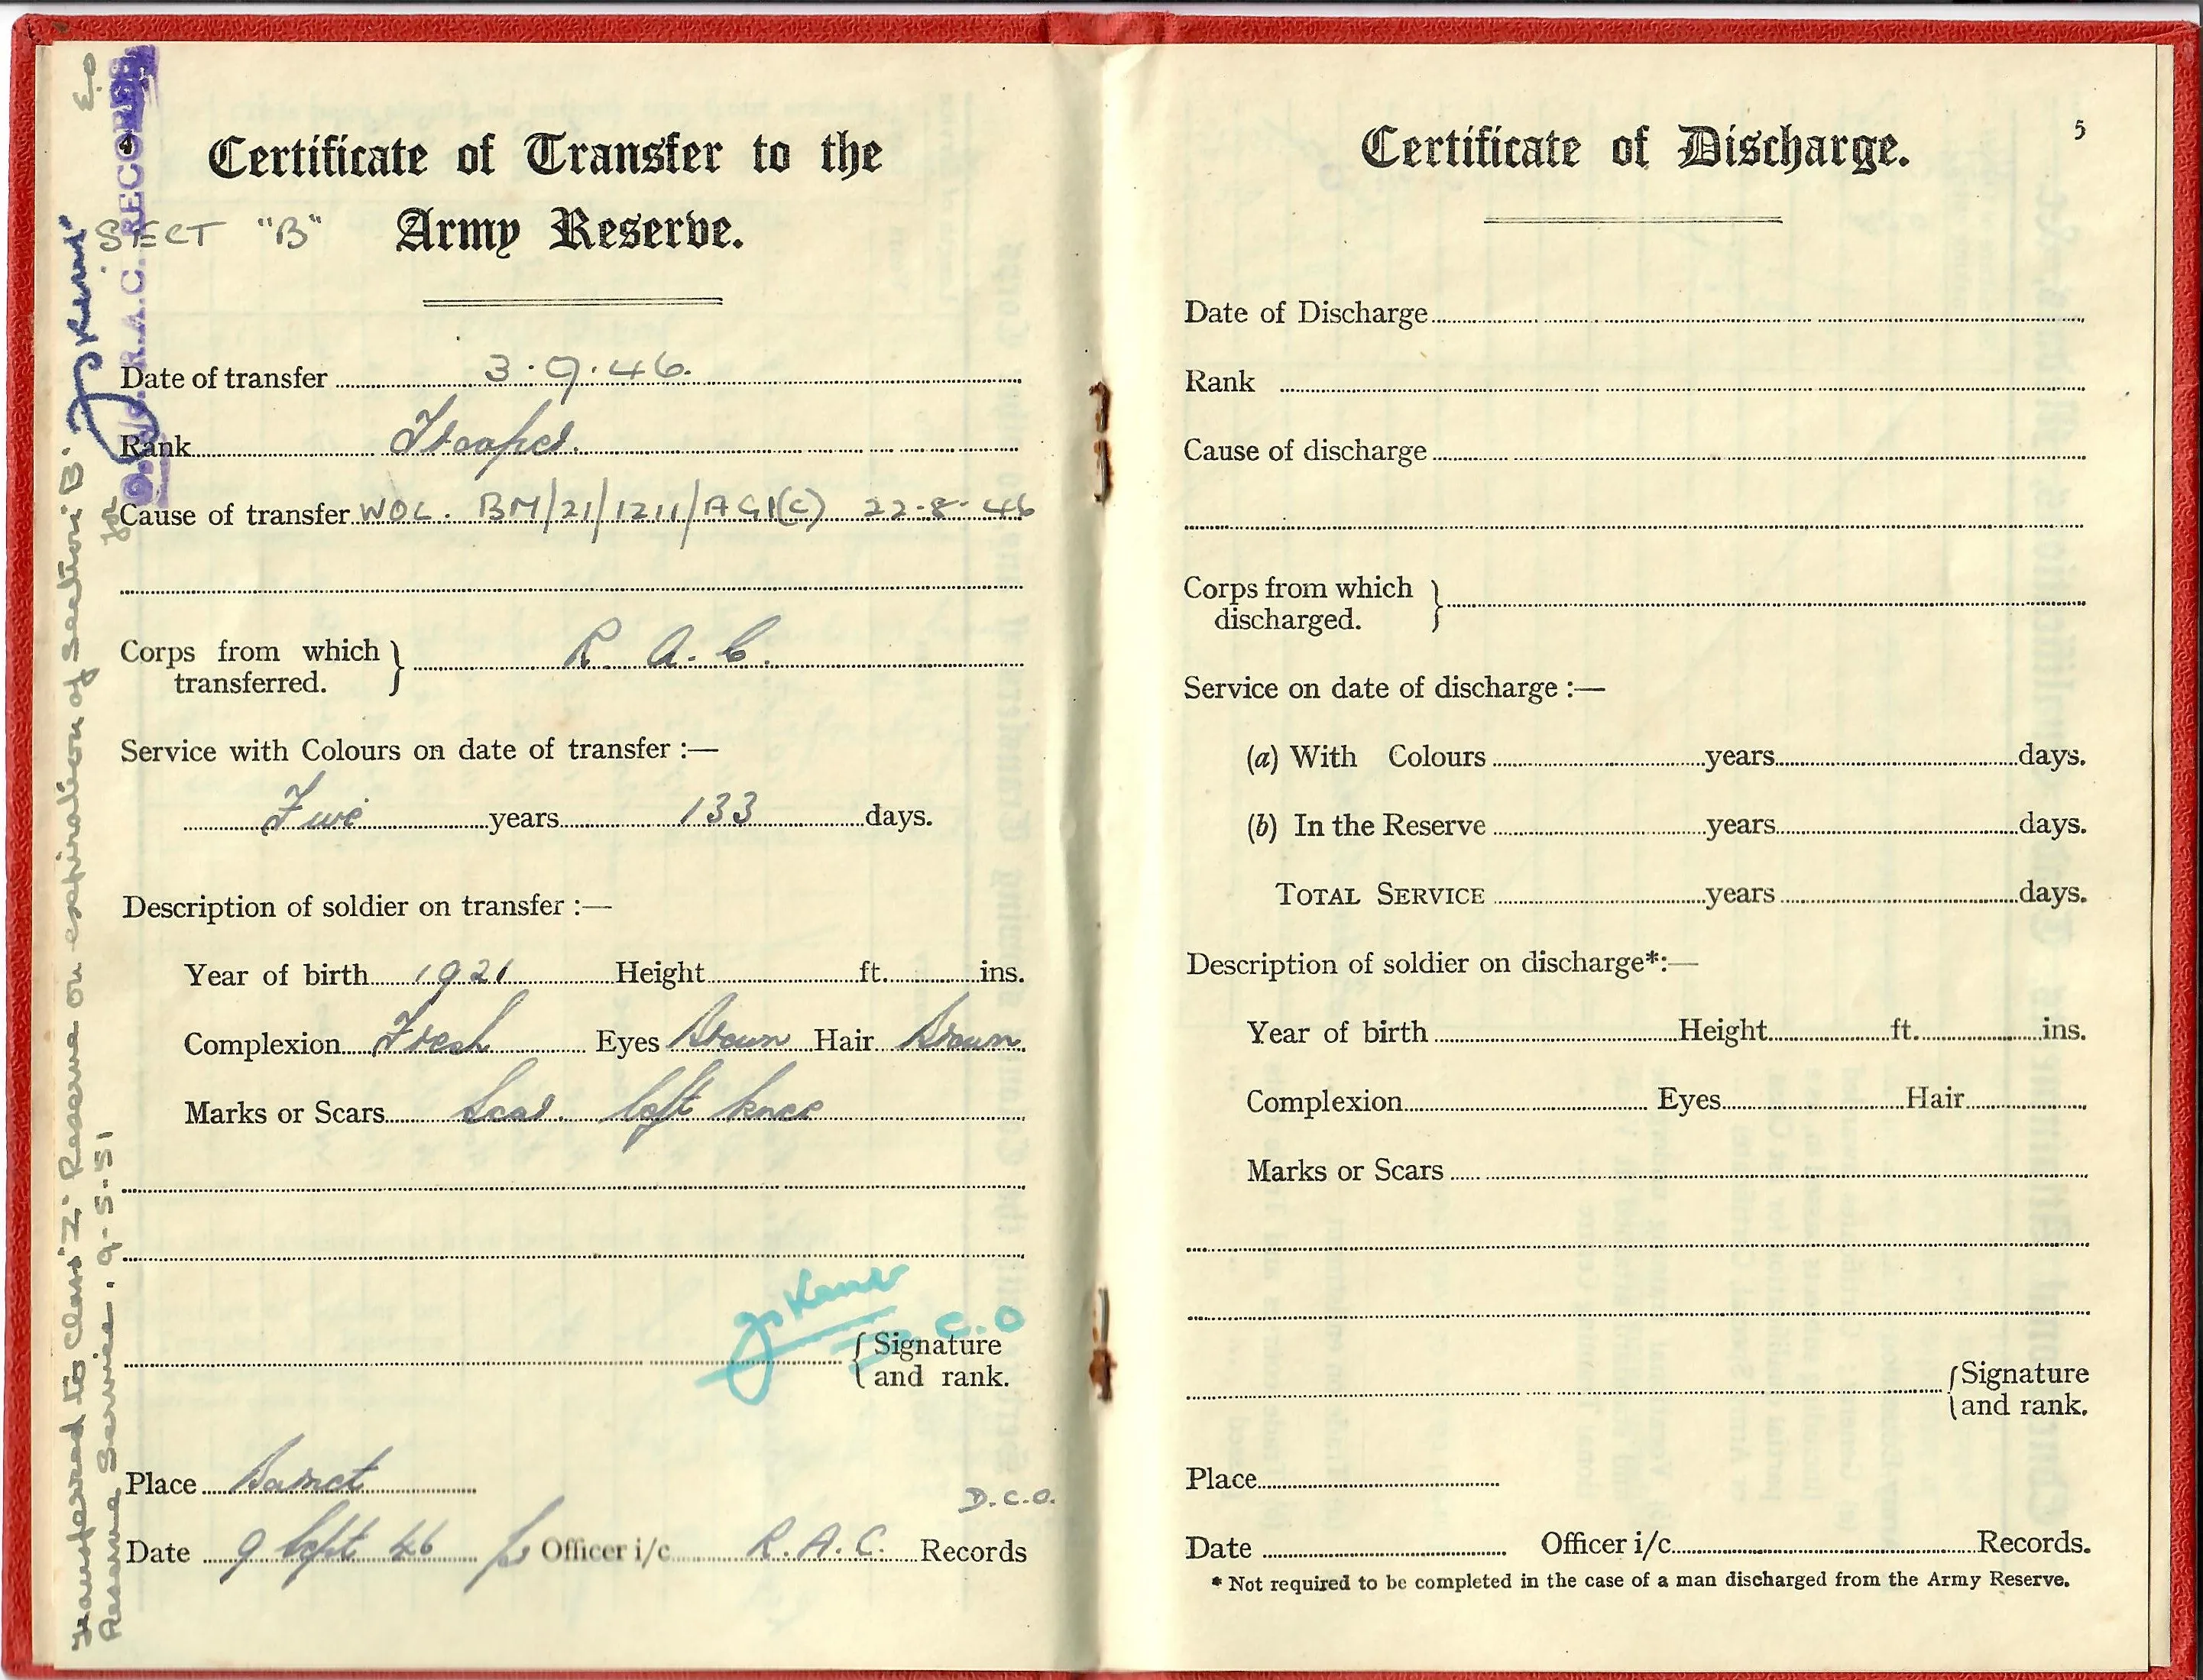 Certificate of Transfer to the
SECT "B" Army Reserve.
Date of transfer 3.9.46.
Rank Trooper.
Cause of transfer WOL. BM/21/1211/AG1(C) 22-8-46
Corps from which
transferred.
R. A. C.
Service with Colours on date of transfer :—
years 133 days.
Description of soldier on transfer :—
Year of birth 1921 Height ft. ins.
Complexion Fresh Eyes Brown Hair Brown
Marks or Scars Scar. left knee
C.O
Signature
and rank.
Place Barnet
D.C.O.
Date 9 Sept 46 for Officer i/c R.A.C. Records
Transferred to Class 'Z' Reserve on expiration of Section 'B'
Reserve Service. 9-5-51
for
R.A.C. RECORDS
Certificate of Discharge.
5
Date of Discharge
Rank
Cause of discharge
Corps from which
discharged.
Service on date of discharge :—
(a) With Colours years days.
(b) In the Reserve years days.
TOTAL SERVICE years days.
Description of soldier on discharge*:—
Year of birth Height ft. ins.
Complexion Eyes Hair
Marks or Scars
Signature
and rank.
Place
Date Officer i/c Records.
* Not required to be completed in the case of a man discharged from the Army Reserve.